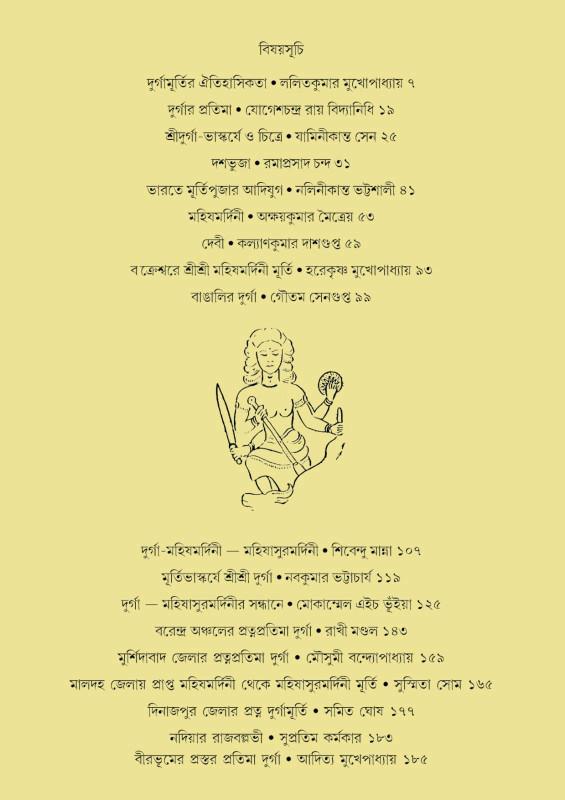 বিষয়সূচি
দুর্গামূর্তির ঐতিহাসিকতা • ললিতকুমার মুখোপাধ্যায় ৭
দুর্গার প্রতিমা • যোগেশচন্দ্র রায় বিদ্যানিধি ১৯
শ্রীদুর্গা-ভাস্কর্যে ও চিত্রে • যামিনীকান্ত সেন ২৫
দশভুজা • রমাপ্রসাদ চন্দ ৩১
ভারতে মূর্তিপুজার আদিযুগ • নলিনীকান্ত ভট্টশালী ৪১
মহিষমর্দিনী • অক্ষয়কুমার মৈত্রেয় ৫৩
দেবী • কল্যাণকুমার দাশগুপ্ত ৫৯
বক্রেশ্বরে শ্রীশ্রী মহিষমর্দিনী মূর্তি • হরেকৃষ্ণ মুখোপাধ্যায় ৯৩
বাঙালির দুর্গা • গৌতম সেনগুপ্ত ৯৯
দুর্গা-মহিষমর্দিনী — মহিষাসুরমর্দিনী • শিবেন্দু মান্না ১০৭
মূর্তিভাস্কর্যে শ্রীশ্রী দুর্গা • নবকুমার ভট্টাচার্য ১১৯
দুর্গা — মহিষাসুরমর্দিনীর সন্ধানে • মোকাম্মেল এইচ ভূঁইয়া ১২৫
বরেন্দ্র অঞ্চলের প্রত্নপ্রতিমা দুর্গা • রাখী মণ্ডল ১৪৩
মুর্শিদাবাদ জেলার প্রত্নপ্রতিমা দুর্গা • মৌসুমী বন্দ্যোপাধ্যায় ১৫৯
মালদহ জেলায় প্রাপ্ত মহিষমর্দিনী থেকে মহিষাসুরমর্দিনী মূর্তি • সুস্মিতা সোম ১৬৫
দিনাজপুর জেলার প্রত্ন দুর্গামূর্তি • সমিত ঘোষ ১৭৭
নদিয়ার রাজবল্লভী • সুপ্রতিম কর্মকার ১৮৩
বীরভূমের প্রস্তর প্রতিমা দুর্গা • আদিত্য মুখোপাধ্যায় ১৮৫